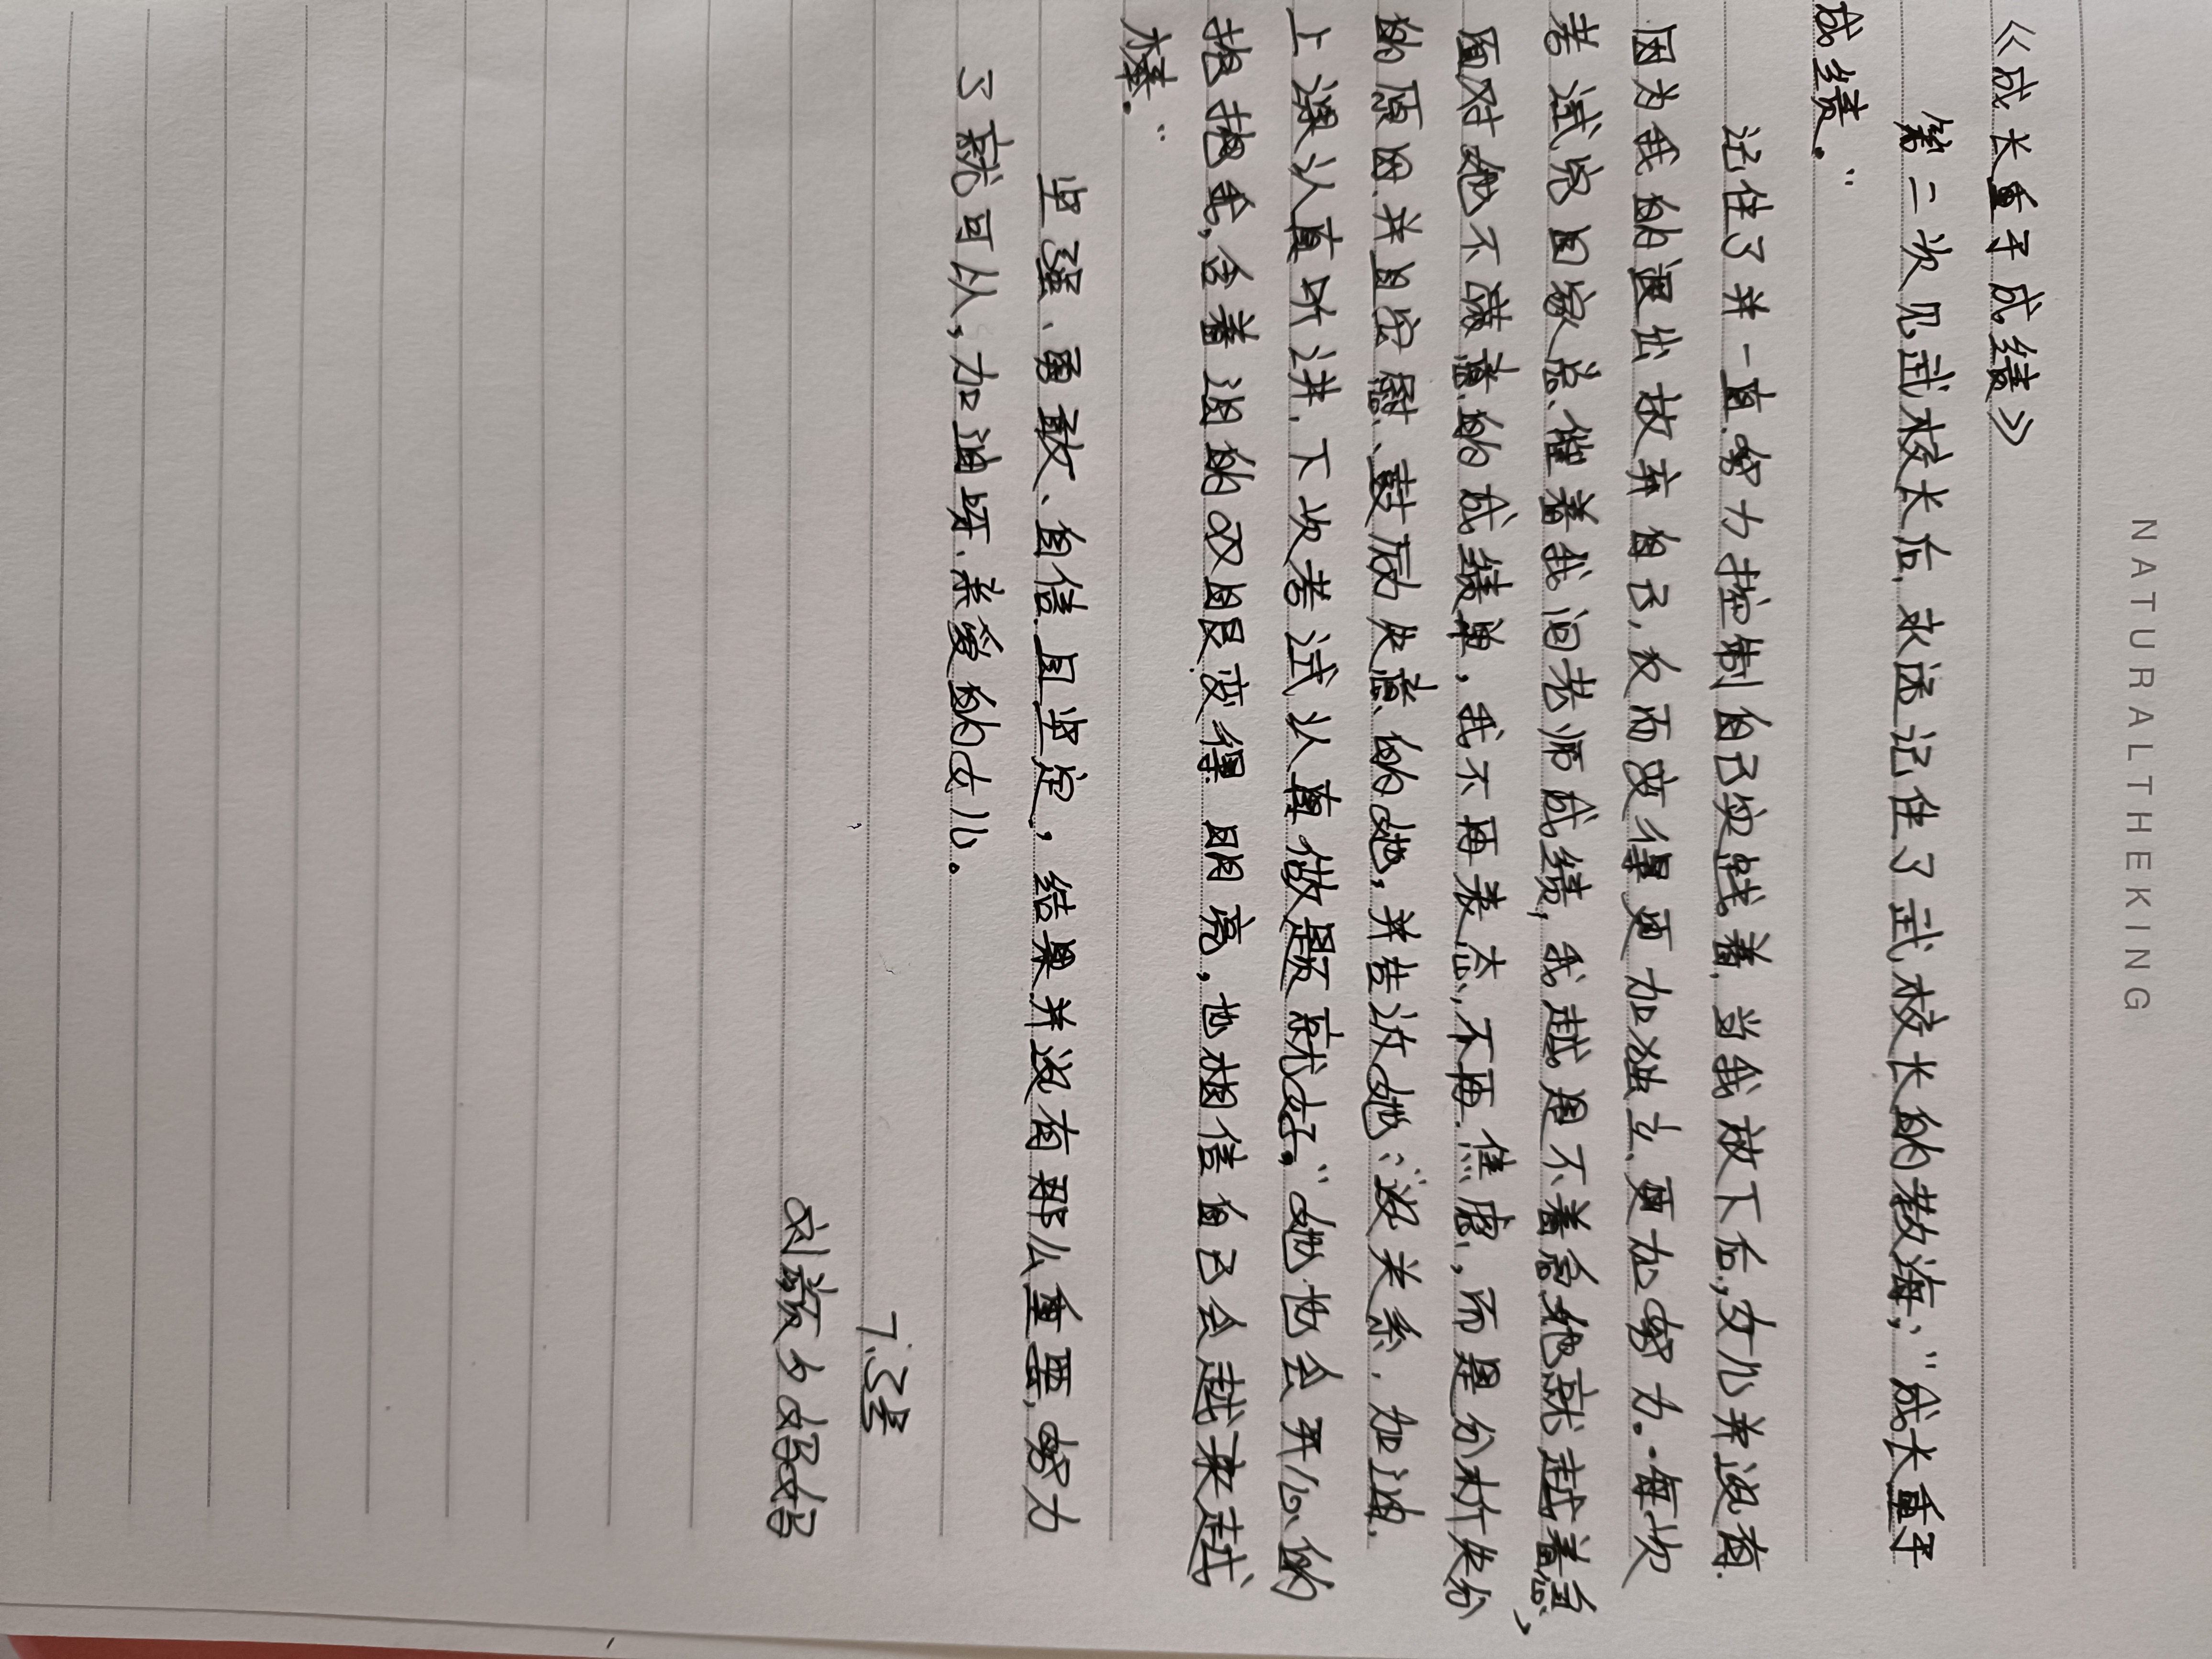 NATURALTHEKING
《成长重于成绩》
第二次见武校长后，永远记住了武校长的教诲，“成长重于
成绩。”
记住了并一直努力控制自己实践着，当我放下后，女儿并没有
因为我的退出放弃自己，反而变得更加独立，更加努力。每次
考试完回家总催着我问老师成绩，我越是不着急她就越着急，
面对她不满意的成绩单，我不再表态，不再焦虑，而是分析失分
的原因并且安慰、鼓励失意的她，并告诉她：“没关系，加油，
上课认真听讲，下次考试认真做题就好。”她也会开心的
抱抱我，含着泪的双眼变得明亮，也相信自己会越来越
棒。”
坚强、勇敢、自信且坚定，结果并没有那么重要，努力
了就可以，加油呀，亲爱的女儿。
7.3星
刘颜夕妈妈